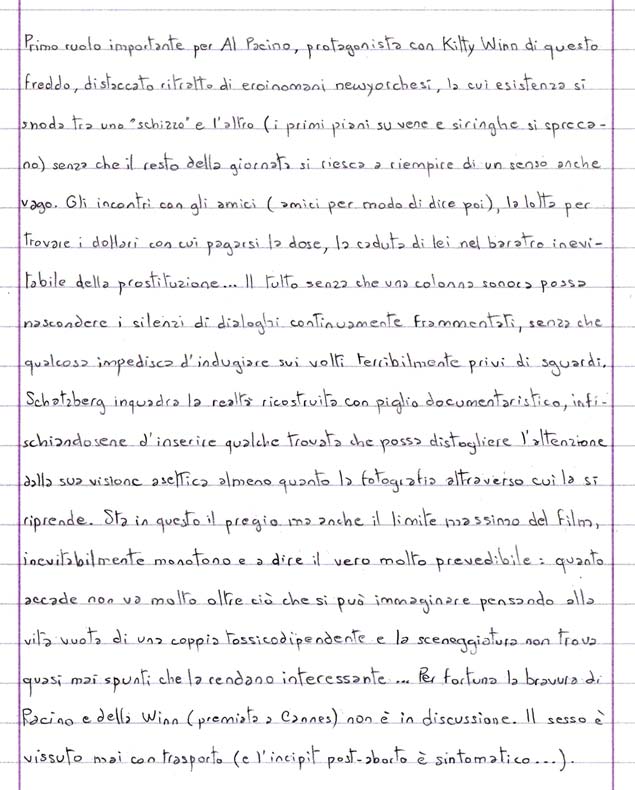 Primo ruolo importante per Al Pacino, protagonista con Kitty Winn di questo
freddo, distaccato ritratto di eroinomani newyorchesi, la cui esistenza si
snoda tra uno "schizzo" e l'altro (i primi piani su vene e siringhe si spreca-
no) senza che il resto della giornata si riesca a riempire di un senso anche
vago. Gli incontri con gli amici (amici per modo di dire poi), la lotta per
trovare i dollari con cui pagarsi la dose, la caduta di lei nel baratro inevi-
tabile della prostituzione... Il tutto senza che una colonna sonora possa
nascondere i silenzi di dialoghi continuamente frammentati, senza che
qualcosa impedisca d'indugiare sui volti terribilmente privi di sguardi.
Schatzberg inquadra la realtà ricostruita con piglio documentaristico, infi-
schiandosene d'inserire qualche trovata che possa distogliere l'attenzione
dalla sua visione asettica almeno quanto la fotografia attraverso cui la si
riprende. Sta in questo il pregio ma anche il limite massimo del film,
inevitabilmente monotono e a dire il vero molto prevedibile: quanto
accade non va molto oltre ciò che si può immaginare pensando alla
vita vuota di una coppia tossicodipendente e la sceneggiatura non trova
quasi mai spunti che la rendano interessante... Per fortuna la bravura di
Pacino e della Winn (premiata a Cannes) non è in discussione. Il sesso è
vissuto mai con trasporto (e l'incipit post-aborto è sintomatico...).